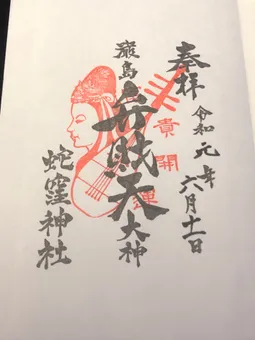 奉拝
令和元年六月十一日
貴
開運
厳島
弁財天
大神
蛇窪神社